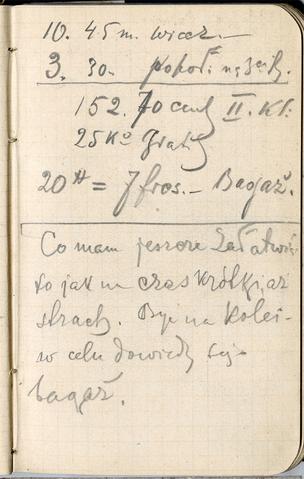 10. 45 m. wiecz.—
3. 30. popoł.
152. 70 cent II. Kl:
25 Ko Gratis
20 # = 7 frcs.— Bagaż.
Co mam jeszcze załatwić
to jak na czas krótki, aż
strach. Być na kolei-
w celu dowiedz. się-
bagaż.